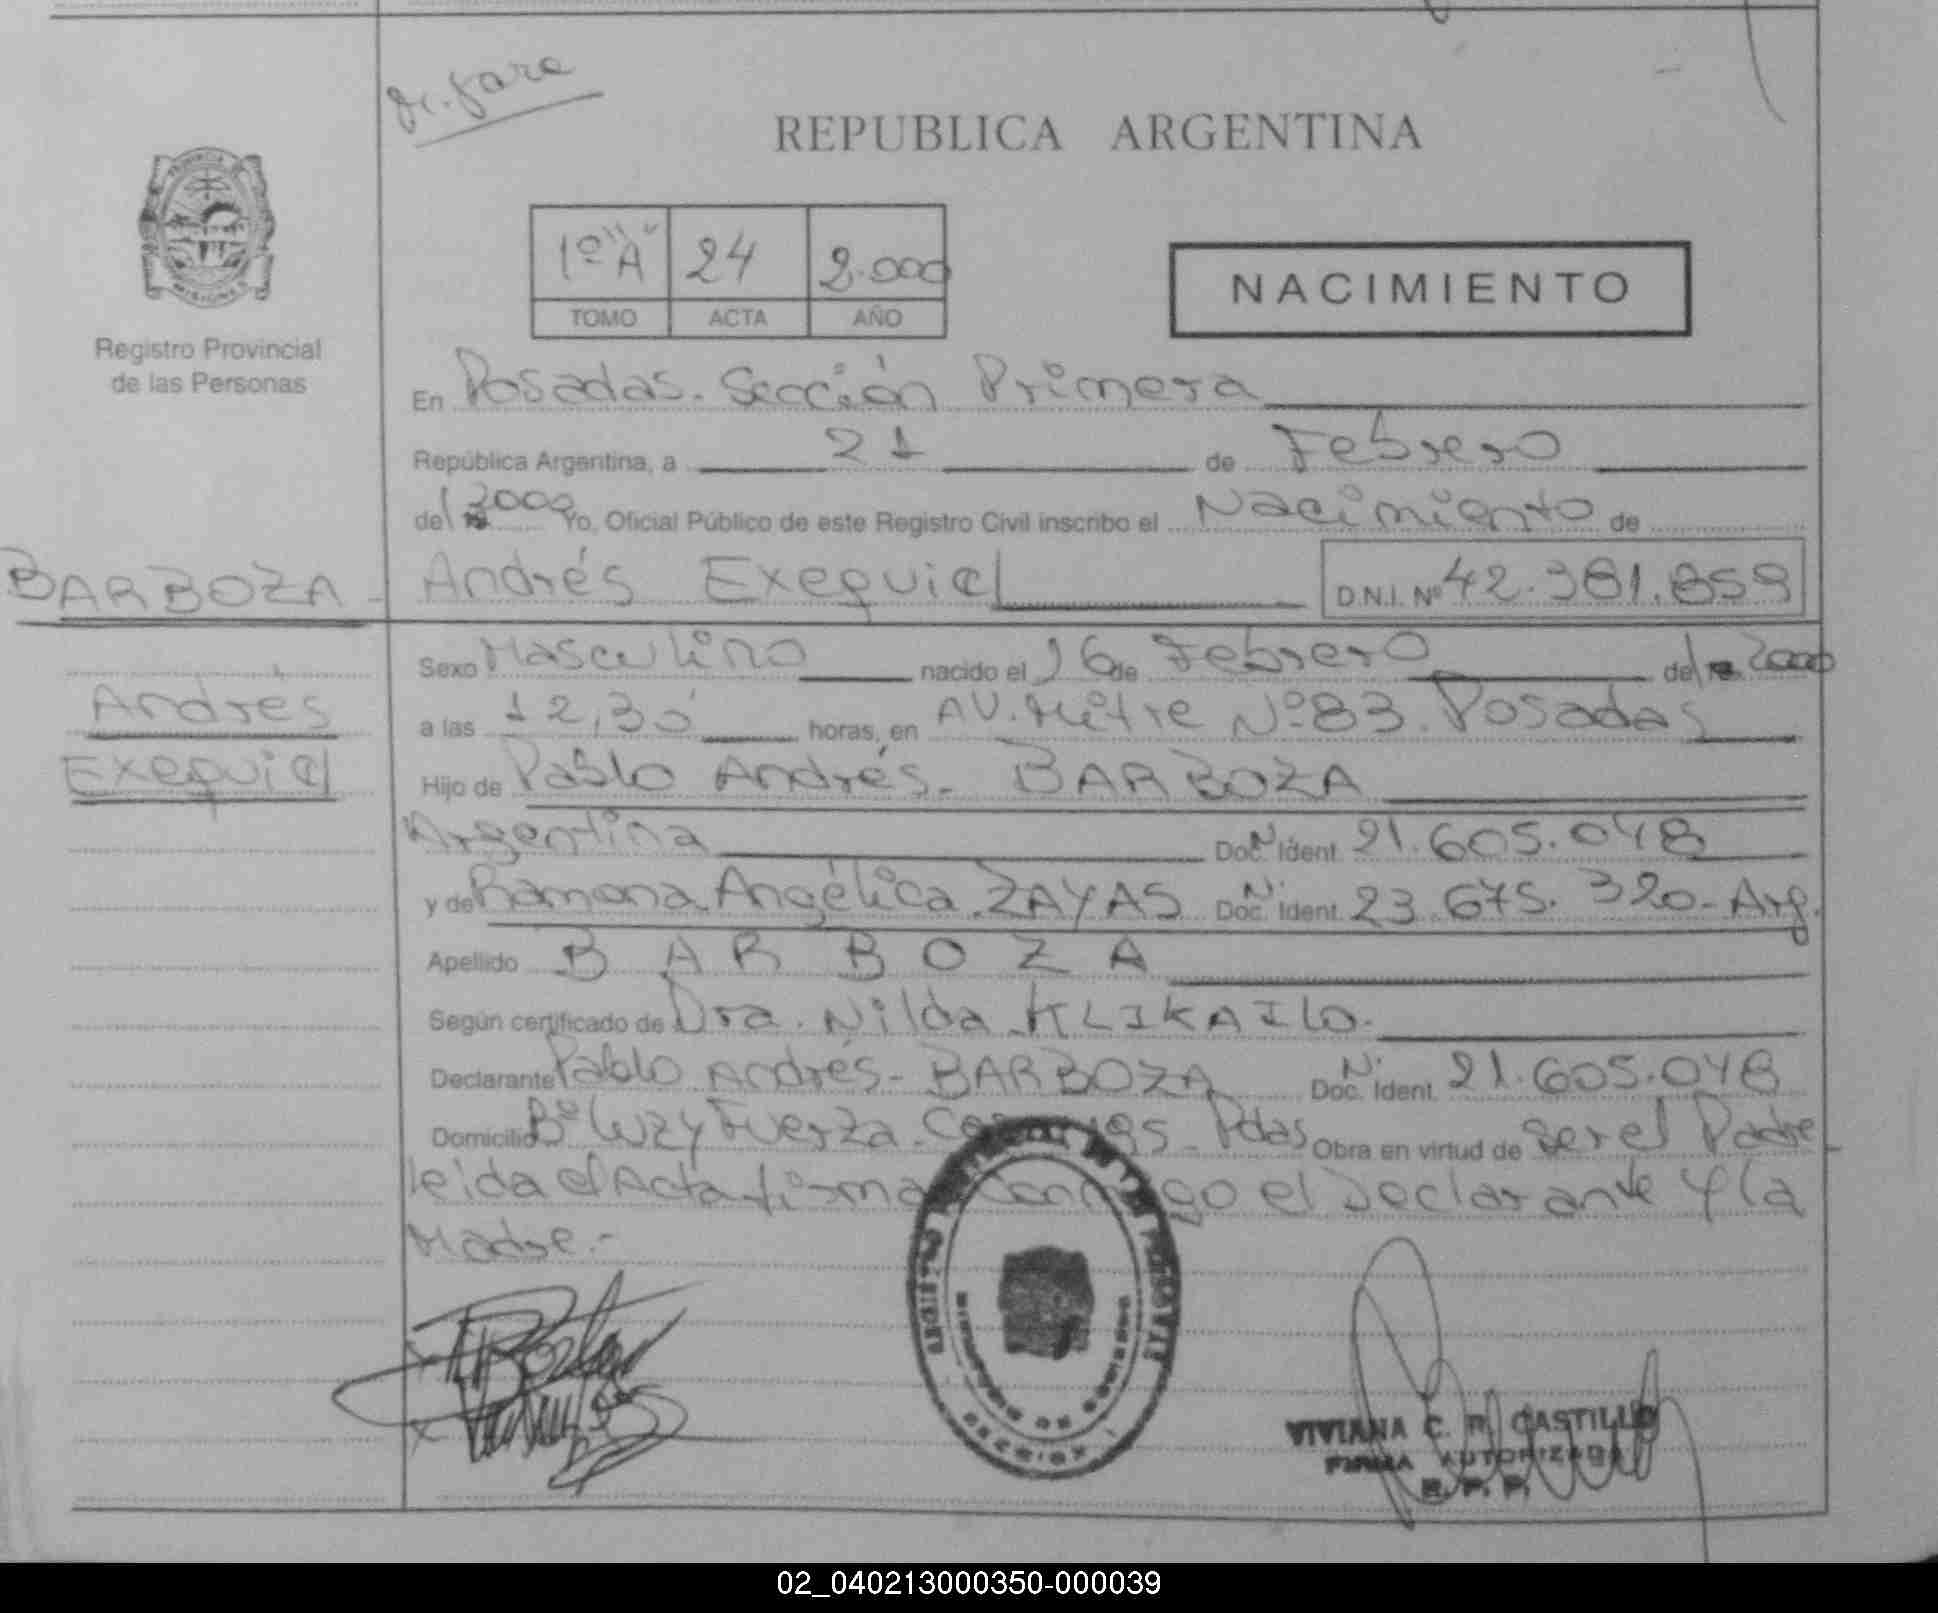 REPUBLICA ARGENTINA
PROVINCIA
MISIONES
Registro Provincial
de las Personas
1º "A" 24 2.000
TOMO ACTA AÑO
NACIMIENTO
En Posadas. Sección Primera
República Argentina, a 21 de Febrero
del 2000 Yo, Oficial Público de este Registro Civil inscribo el Nacimiento de
BARBOZA - Andrés Exequiel D.N.I. Nº 42.381.859
Sexo Masculino nacido el 16 de Febrero del 2000
Andrés
a las 12,30 horas, en AV. Mitre Nº 83. Posadas
Exequiel
Hijo de Pablo Andrés - BARBOZA
Argentina Doc. N. Ident. 21.605.048
y de Ramona Angélica ZAYAS Doc. N. Ident. 23.675.320 - Arg.
Apellido BARBOZA
Según certificado de Dra. Nilda KLIKAILO.
Declarante Pablo Andrés - BARBOZA Doc. N. Ident. 21.605.048
Domicilio Bº Luz y Fuerza - Pdas Obra en virtud de ser el Padre -
leida el Acta firma el Declarante y la
Madre.-
VIVIANA C. R. CASTILLO
FIRMA AUTORIZADA
R. P. P.
02_040213000350-000039